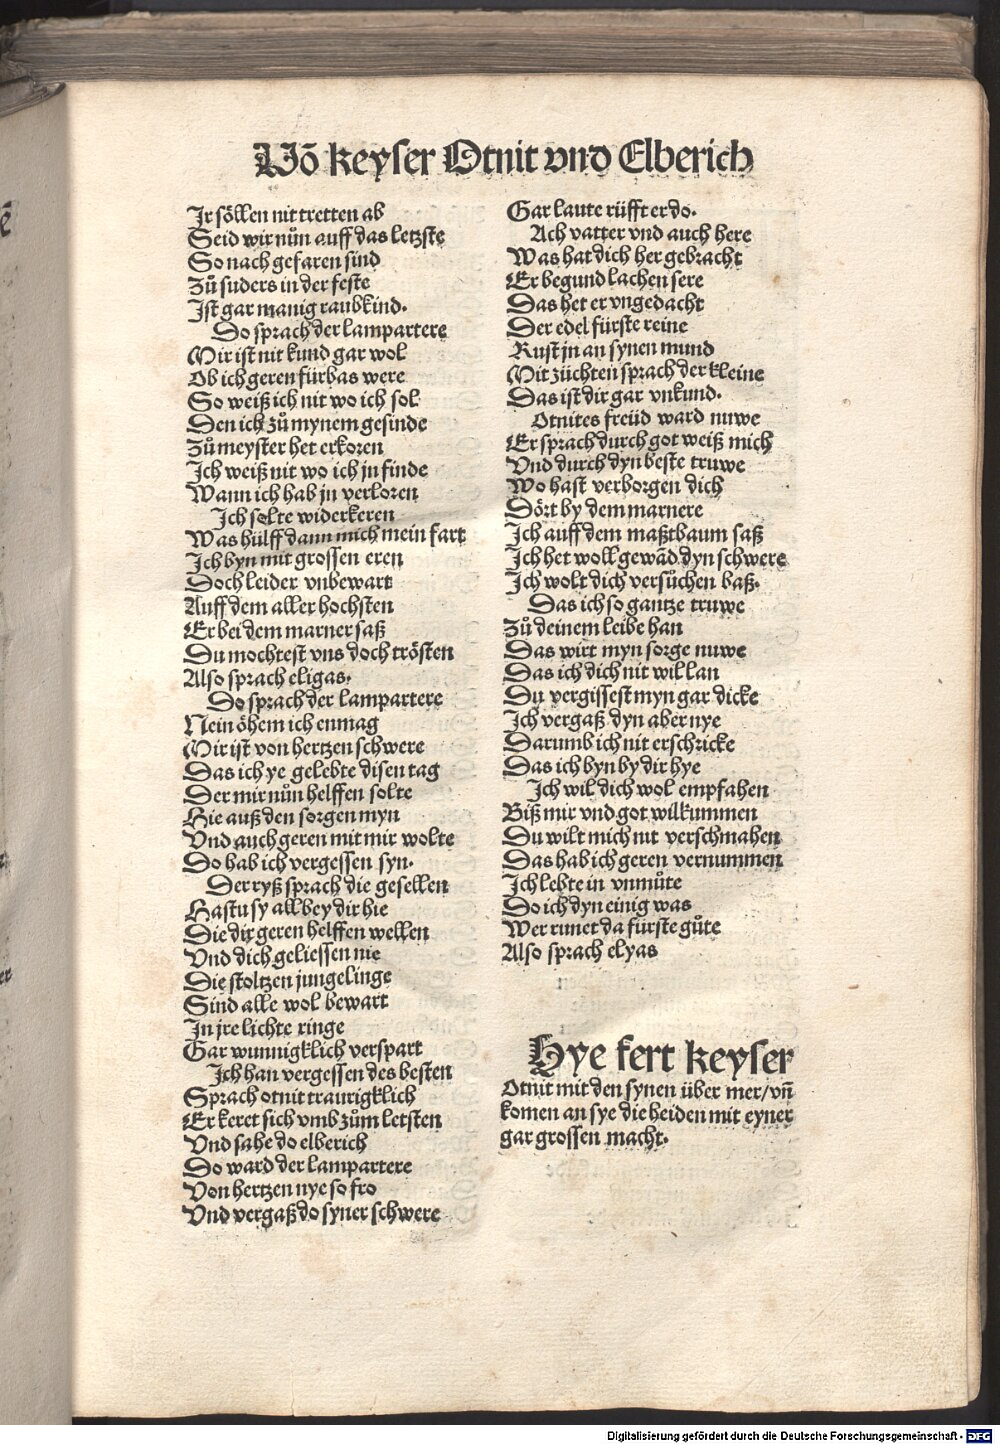 Võ keyser Otnit vnd Elberich
Ir söllen nit tretten ab
Seid wir nůn auff das letzste
So nach gefaren sind
Zů suders in der feste
Ist gar manig raubkind.
Do sprach der lampartere
Mir ist nit kund gar wol
Ob ich geren fürbas were
So weiß ich nit wo ich sol
Den ich zů mynem gesinde
Zů meyster het erkoren
Ich weiß nit wo ich jn finde
Wann ich hab jn verloren
Ich solte widerkeren
Was hülff dann mich mein fart
Ich byn mit grossen eren
Doch leider vnbewart
Auff dem aller hochsten
Er bei dem marner saß
Du mochtest vns doch trösten
Also sprach eligas.
Do sprach der lampartere
Nein öhem ich enmag
Mir ist von hertzen schwere
Das ich ye gelebte disen tag
Der mir nůn helffen solte
Hie auß den sorgen myn
Vnd auch geren mit mir wolte
Do hab ich vergessen syn.
Der ryß sprach die gesellen
Hastu sy all bey dir hie
Die dir geren helffen wellen
Vnd dich geliessen nie
Die stoltzen jungelinge
Sind alle wol bewart
In jre lichte ringe
Gar wunnigklich verspart
Ich han vergessen des besten
Sprach otnit traurigklich
Er keret sich vmb zům letsten
Vnd sahe do elberich
Do ward der lampartere
Von hertzen nye so fro
Vnd vergaß do syner schwere
Gar laute rüfft er do.
Ach vatter vnd auch here
Was hat dich her gebracht
Er begund lachen sere
Das het er vngedacht
Der edel fürste reine
Kust jn an synen mund
Mit züchten sprach der kleine
Das ist dir gar vnkund.
Otnites freüd ward nuwe
Er sprach durch got weiß mich
Vnd durch dyn beste truwe
Wo hast verborgen dich
Dört by dem marnere
Ich auff dem maßtbaum saß
Ich het woll gewãd dyn schwere
Ich wolt dich versůchen baß.
Das ich so gantze truwe
Zů deinem leibe han
Das wirt myn sorge nuwe
Das ich dich nit wil lan
Du vergissest myn gar dicke
Ich vergaß dyn aber nye
Darumb ich nit erschricke
Das ich byn by dir hye
Ich wil dich wol empfahen
Biß mir vnd got wilkummen
Du wilt mich nit verschmahen
Das hab ich geren vernummen
Ich lebte in vnmůte
Do ich dyn einig was
Wer runet da fürste gůte
Also sprach elyas
Hye fert keyser
Otnit mit den synen über mer/vñ
komen an sye die heiden mit eyner
gar grossen macht.
Digitalisierung gefördert durch die Deutsche Forschungsgemeinschaft - DFG